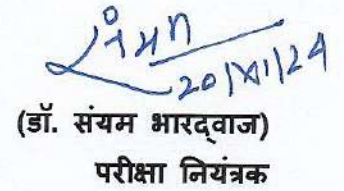 संयम
20/XII/24
(डॉ. संयम भारद्वाज)
परीक्षा नियंत्रक